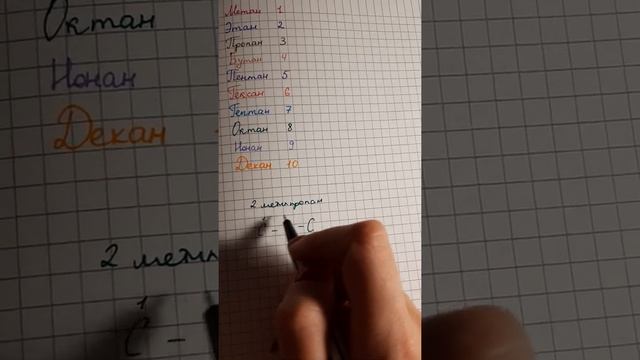 Метан 1
Этан 2
Пропан 3
Бутан 4
Пентан 5
Гексан 6
Гептан 7
Октан 8
Нонан 9
Декан 10
2 метилпропан
1
С - - С
Октан
Нонан
Декан
2 метил
1
С -